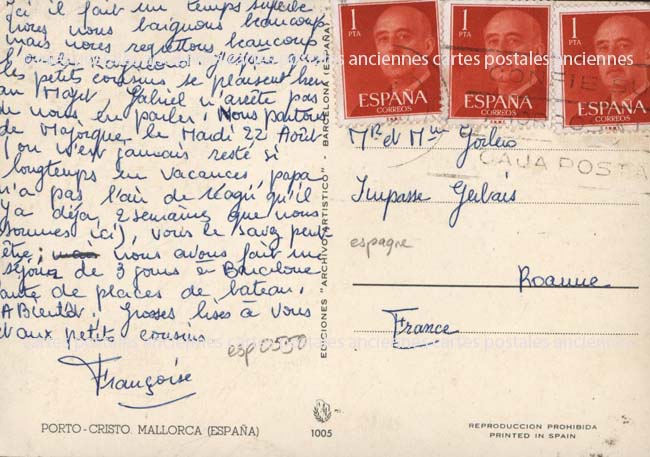 Ici il fait un temps superbe
nous nous baignons beaucoup
mais nous regrettons beaucoup
les petits cousins se plaisent bien
au Mayet, Gabriel n'arrête pas
de nous en parler. Nous partons
de Majorque le Mardi 22 Août
(on n'est jamais resté si
longtemps en vacances, papa
n'a pas l'air de réagir qu'il
y a déjà 2 semaines que nous
sommes ici), vous le savez peut
être, nous avons fait un
séjour de 3 jours à Barcelone
faute de places de bateau.
A Bientôt. Grosses bises à vous
et aux petits cousins
Françoise
esp 0550
PORTO-CRISTO. MALLORCA (ESPAÑA)
1005
EDICIONES "ARCHIVO ARTISTICO" - BARCELONA (ESPAÑA)
1 PTA
ESPAÑA
CORREOS
1 PTA
ESPAÑA
CORREOS
1 PTA
ESPAÑA
CORREOS
CAJA POSTA
Mr et Mme
Impasse Gerbais
espagne
Roanne
France
REPRODUCCION PROHIBIDA
PRINTED IN SPAIN
cartes postales anciennes cartes postales anciennes
cartes postales anciennes cartes postales anciennes cartes postales anciennes